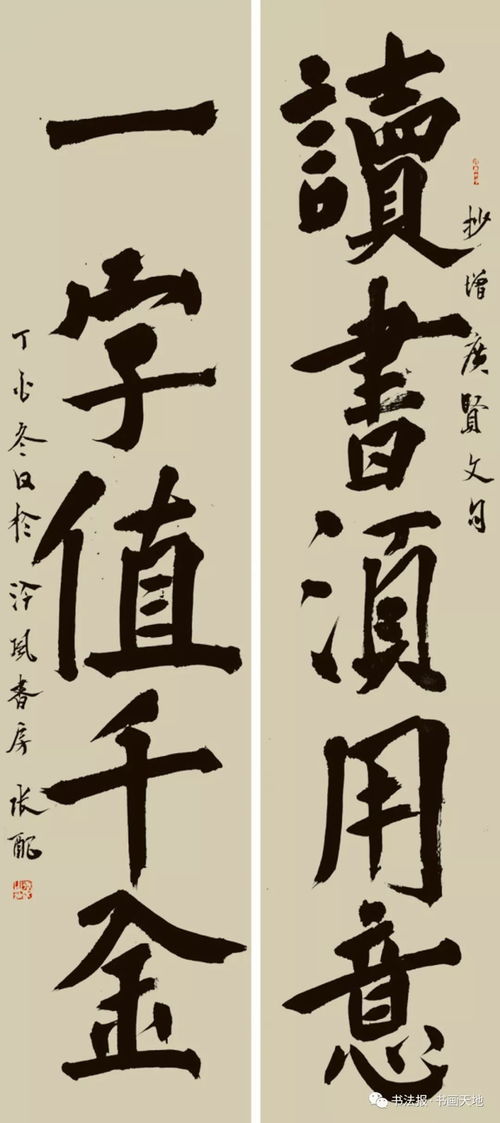 抄增廣賢文句
讀書湏用意
一字值千金
丁酉冬日於 風書房 张
书法报·书画天地